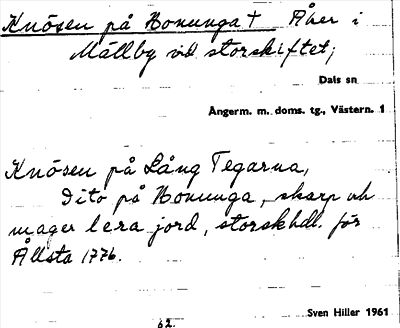 Knösen på Honunga† Åker i
Mällby vid storskiftet;
Dals sn
Ångerm. m. doms. tg., Västern. 1
Knösen på Lång Tegarna,
Dito på Honunga, skarp och
mager lera jord, storskhdl. för
Ållsta 1776.
Sven Hiller 1961
62.